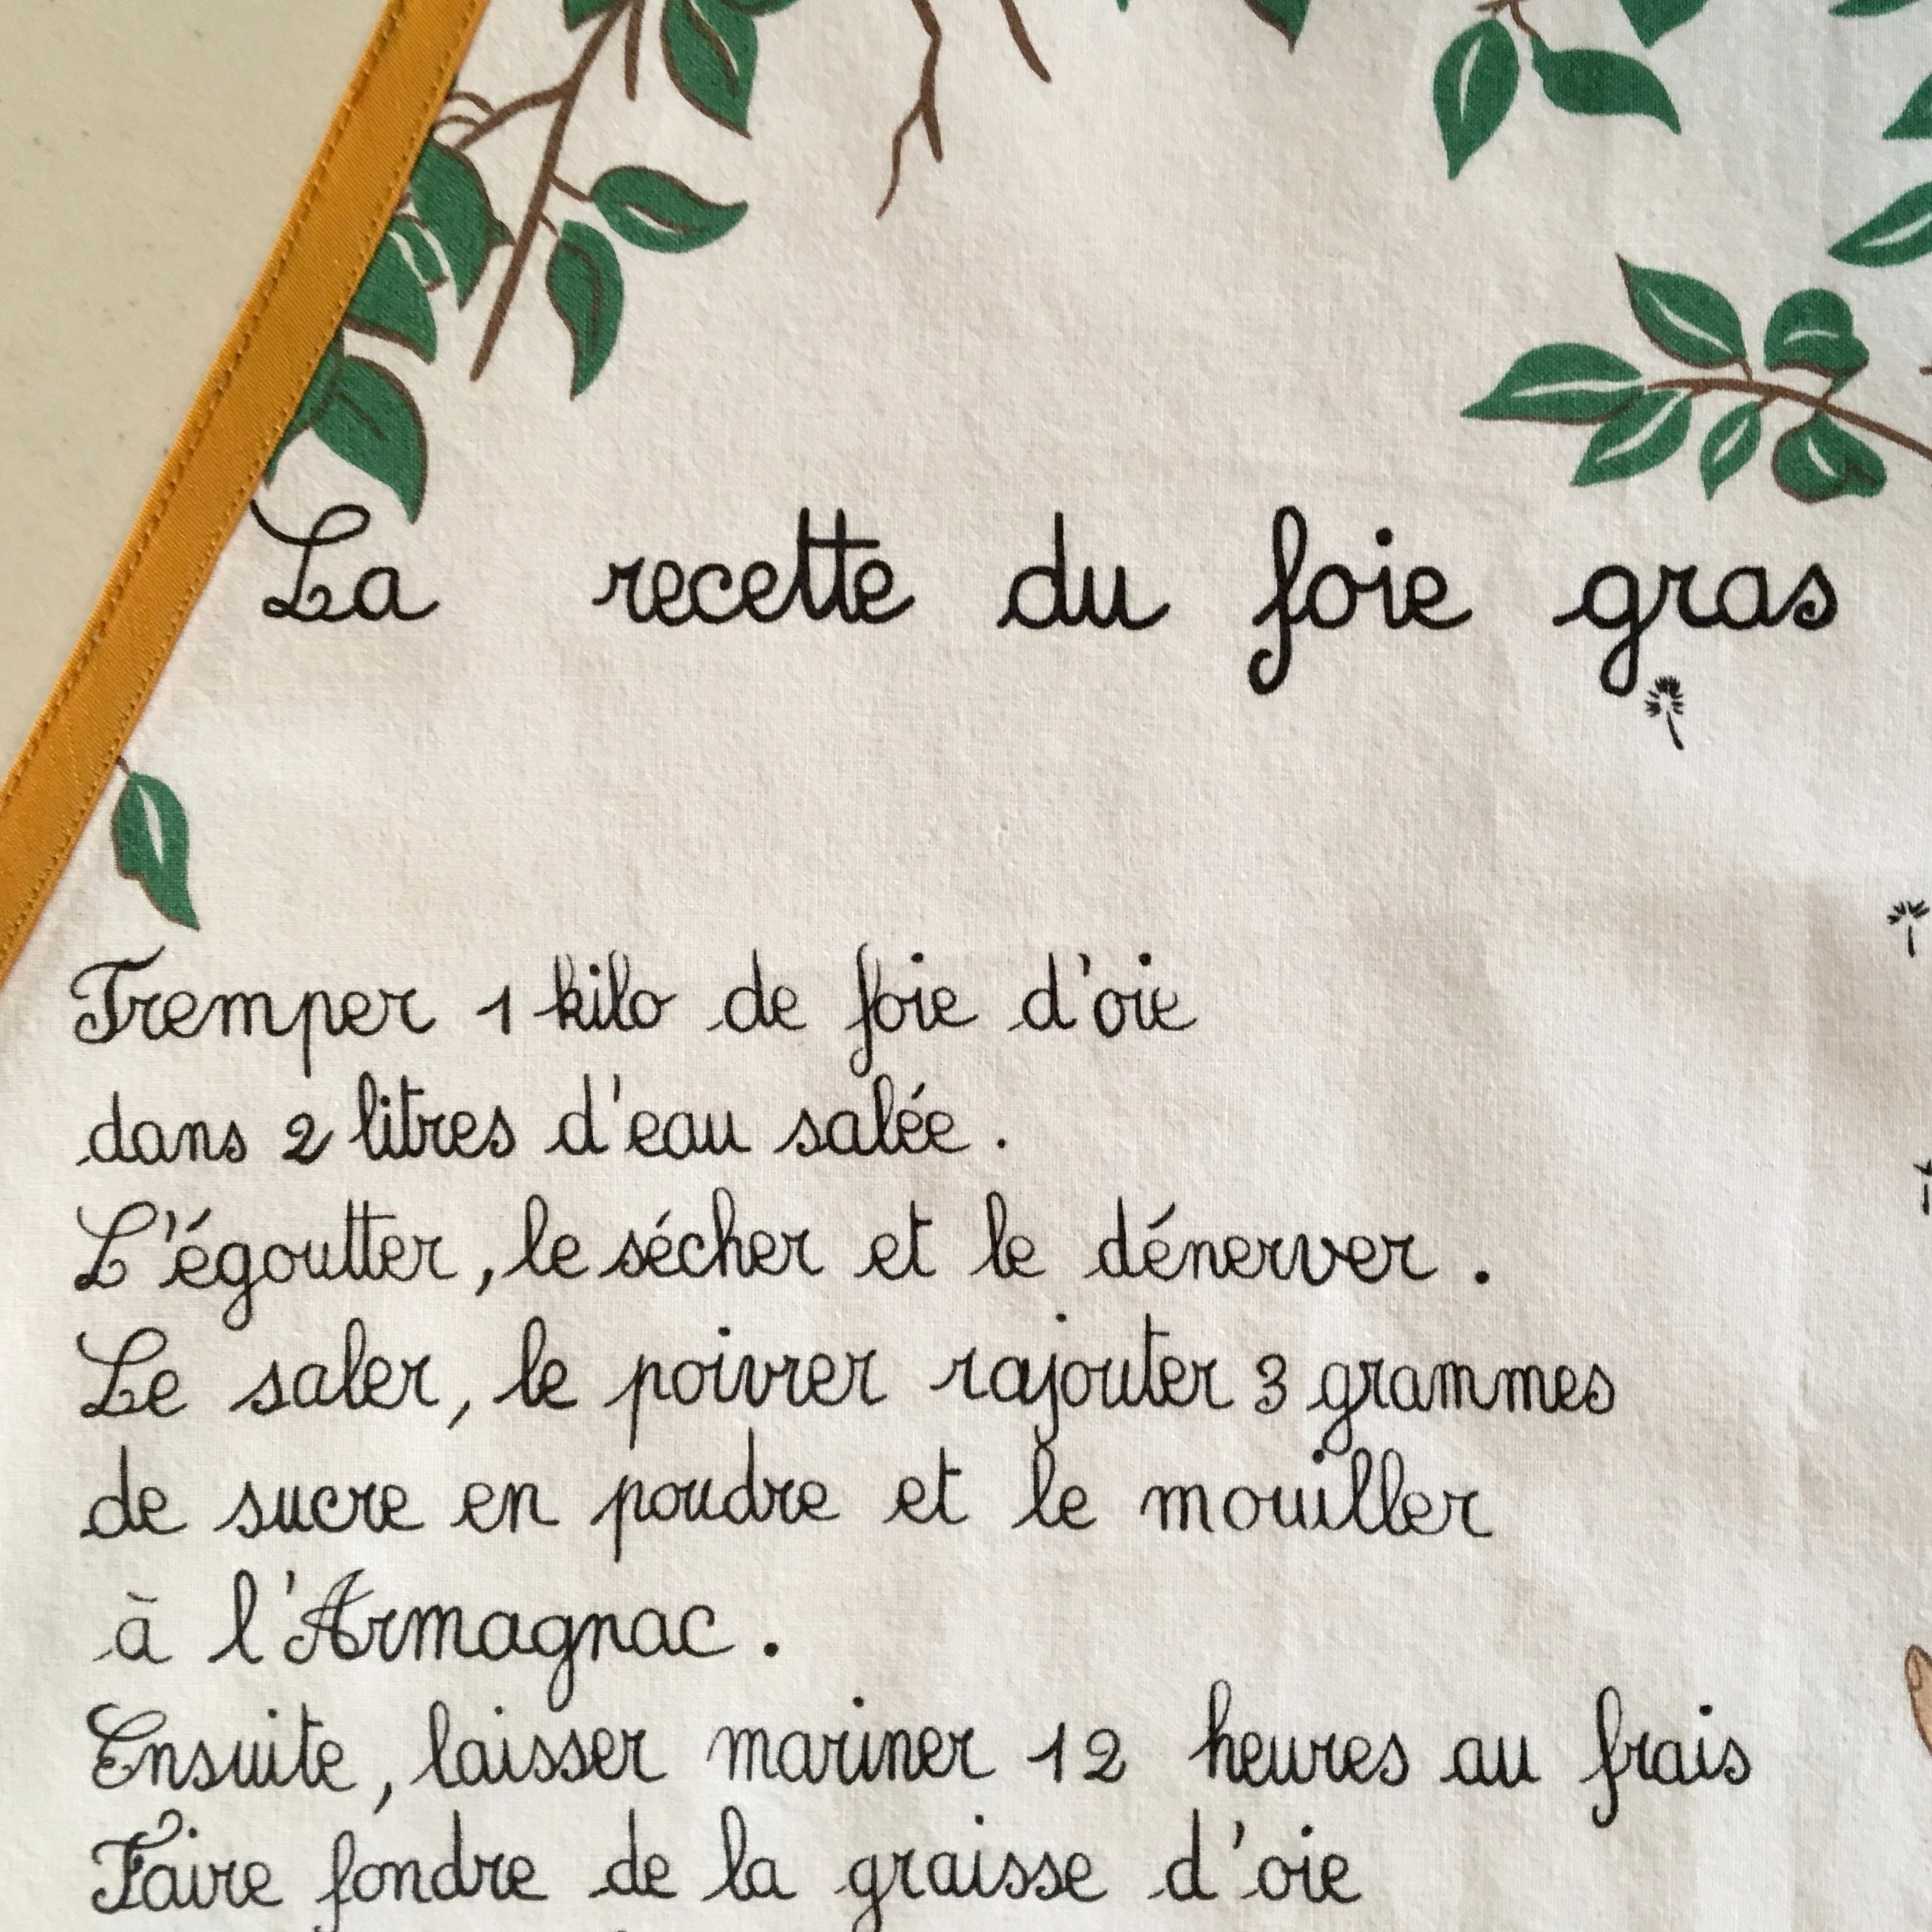 La recette du foie gras
Tremper 1 kilo de foie d'oie
dans 2 litres d'eau salée.
L'égoutter, le sécher et le dénerver.
Le saler, le poivrer rajouter 3 grammes
de sucre en poudre et le mouiller
à l'Armagnac.
Ensuite, laisser mariner 12 heures au frais
Faire fondre de la graisse d'oie